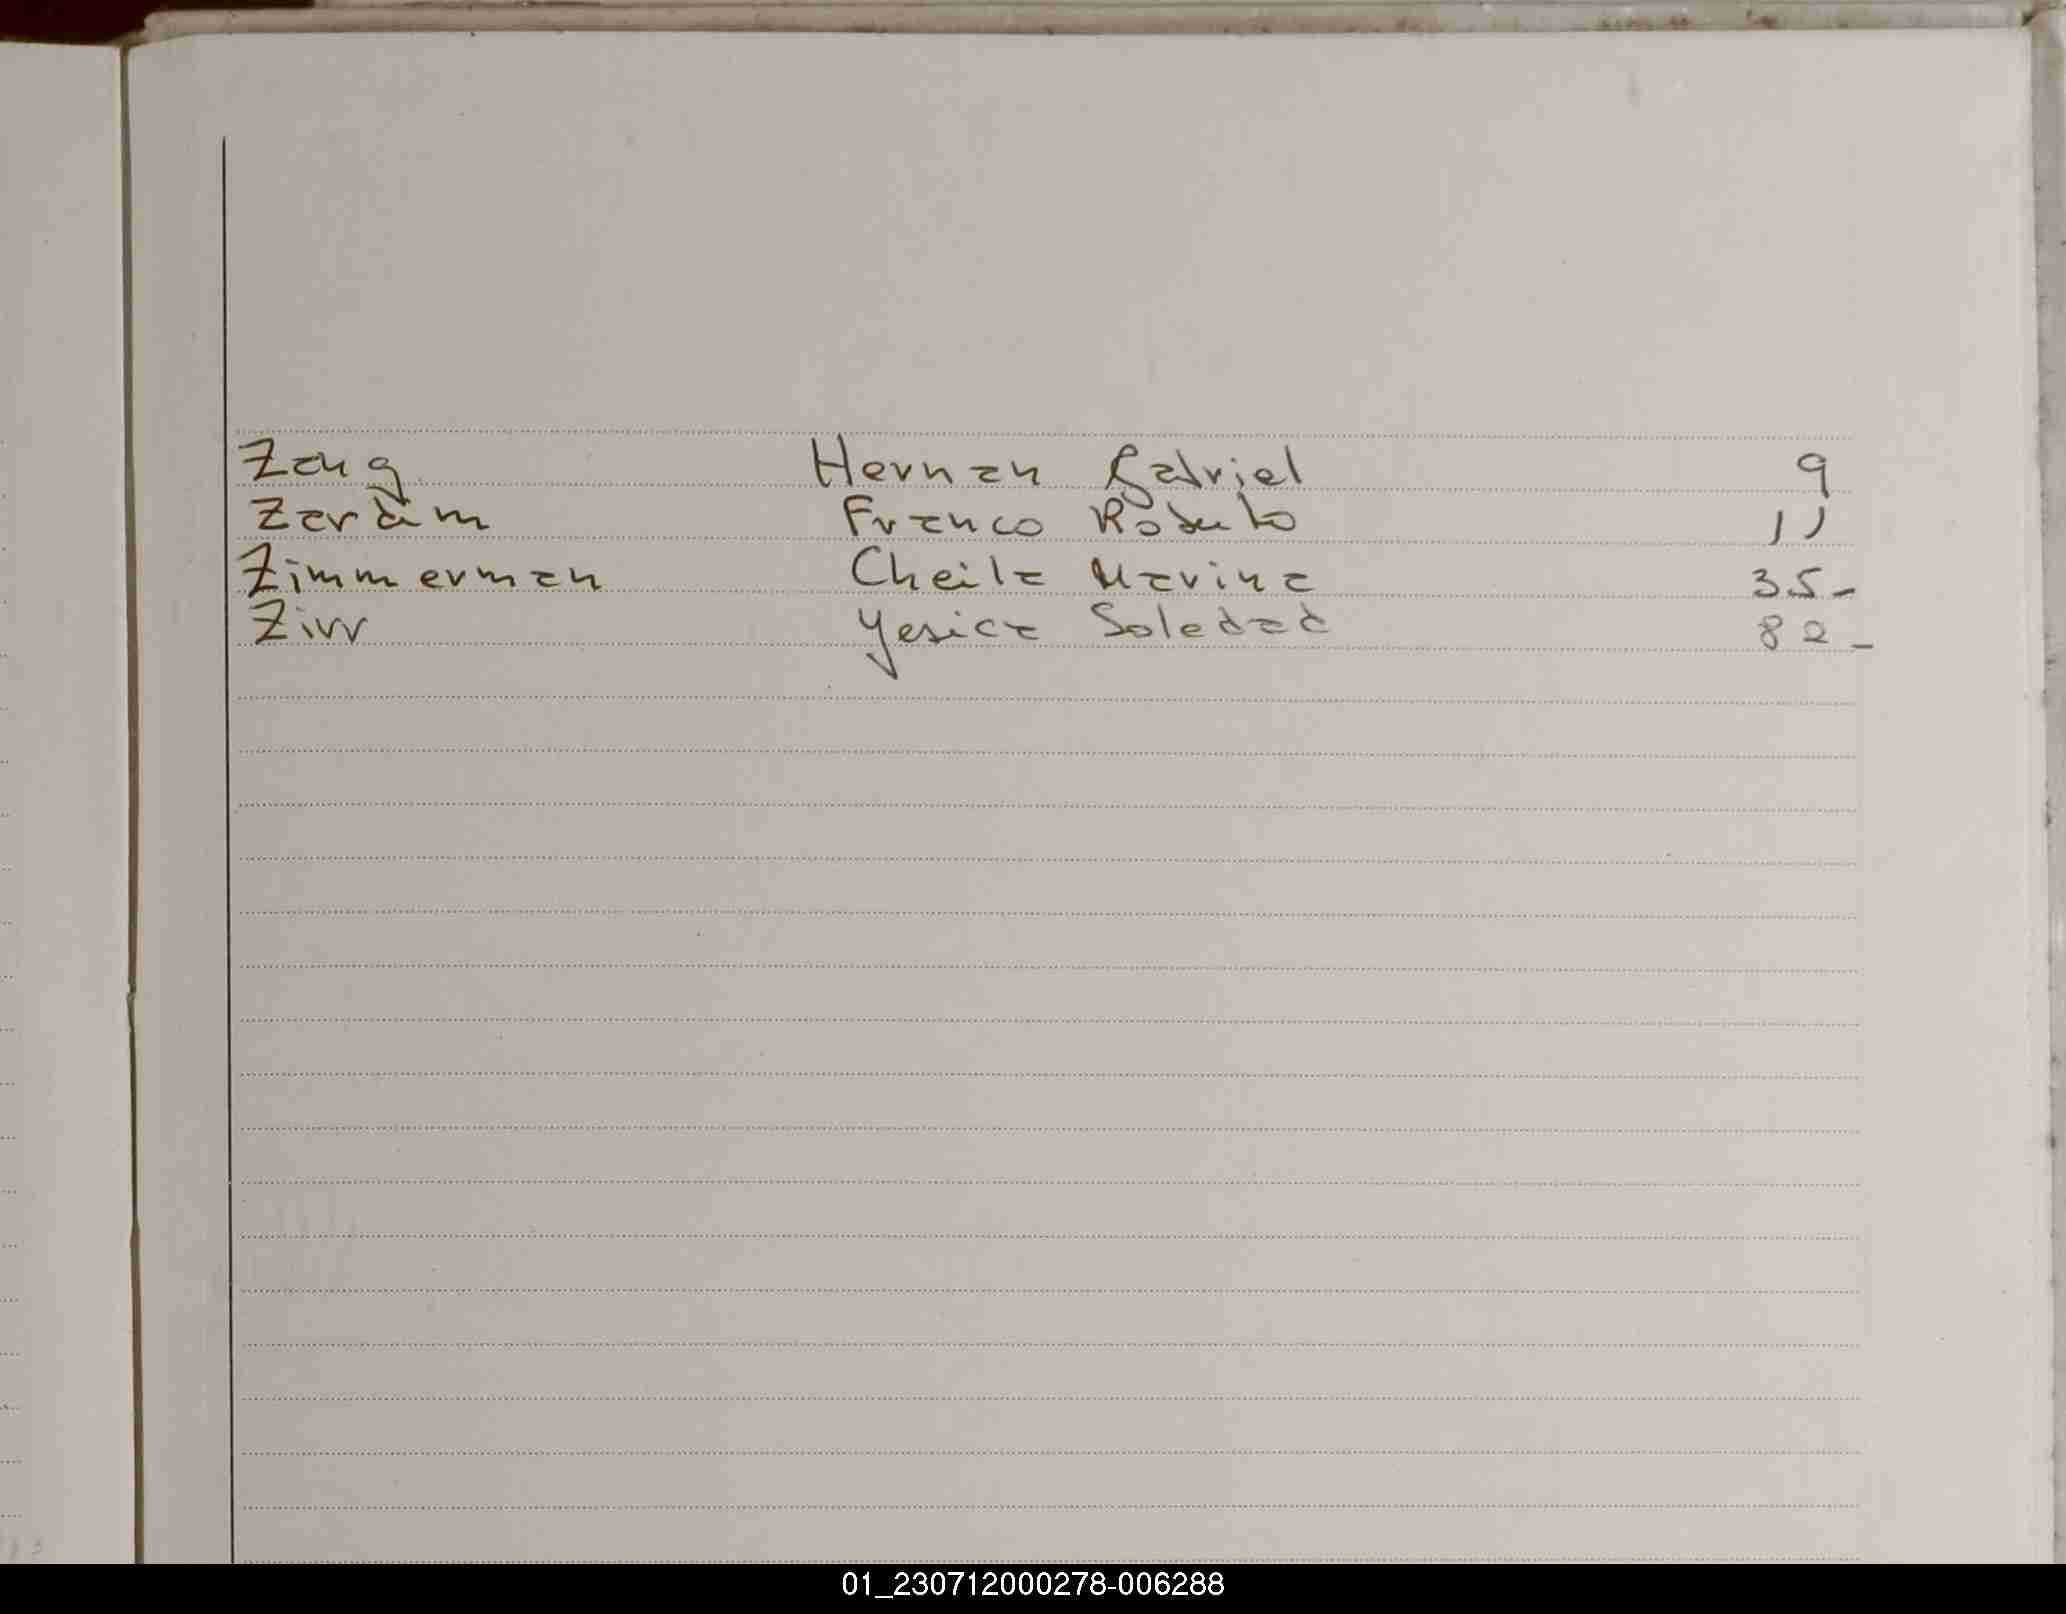 Zaug Hernan Gabriel 9
Zardim Franco Roberto 11
Zimmerman Cheila Marina 35-
Zirr Yesica Soledad 82-
01_230712000278-006288